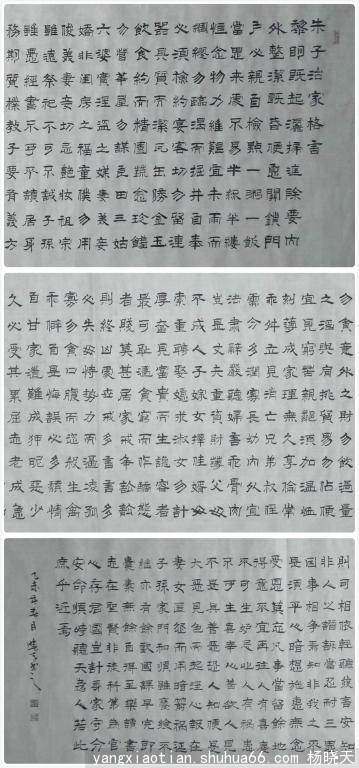 朱子治家格言
黎明即起灑掃庭除要內
外整潔既昏便息關鎖門
戶必親自檢點一粥一飯
當思來處不易半絲半縷
恒念物力維艱宜未雨而
綢繆勿臨渴掘井自奉
必須儉約宴客勿留連
器具質而潔瓦缶勝金玉
飲食約而精園蔬愈珍饈
勿營華屋勿謀良田三姑
六婆實淫盜之媒婢美妾
嬌非閨房之福童僕勿用
俊美妻妾切忌艷妝祖宗
雖遠祭祀不可不誠子孫
雖愚經書不可不讀居身
務期質樸教子要有義方
勿貪意外之財勿飲過量
之酒與肩挑貿易勿佔便
宜見窮苦親鄰須加溫恤
刻薄成家理無久享倫常
乖舛立見消亡兄弟叔侄
需分多潤寡長幼內外宜
法肅辭嚴聽婦言乖骨肉
豈是丈夫重資財薄父母
不成人子嫁女擇佳婿毋
索重聘娶媳求淑女勿計
厚奩見富貴而生諂容者
最可恥遇貧窮而作驕態
者賤莫甚居家戒爭訟訟
則終凶處世戒多言言多
必失毋恃勢力而凌逼孤
寡勿貪口腹而恣殺生禽
乖僻自是悔誤必多頹惰
自甘家道難成狎昵惡少
久必受其累屈志老成急
則可相依輕聽發言安知
非人之譖訴當忍耐三思
因事相爭焉知非我之不
是須平心暗想施惠無念
受恩莫忘凡事當留餘地
得意不宜再往人有喜慶
不可生妒忌心人有禍患
不可生喜幸心善欲人見
不是真善惡恐人知便是
大惡見色而起淫心報在
妻女匿怨而用暗箭禍延
子孫家門和順雖饔飧不
繼亦有餘歡國課早完即
囊橐無餘自得至樂讀書
志在聖賢非徒科第為官
心存君國豈計身家守分
安命順時聽天為人若此
庶乎近焉
乙未年春月曉天書
yangxiaotian.shuhua66.com 杨晓天